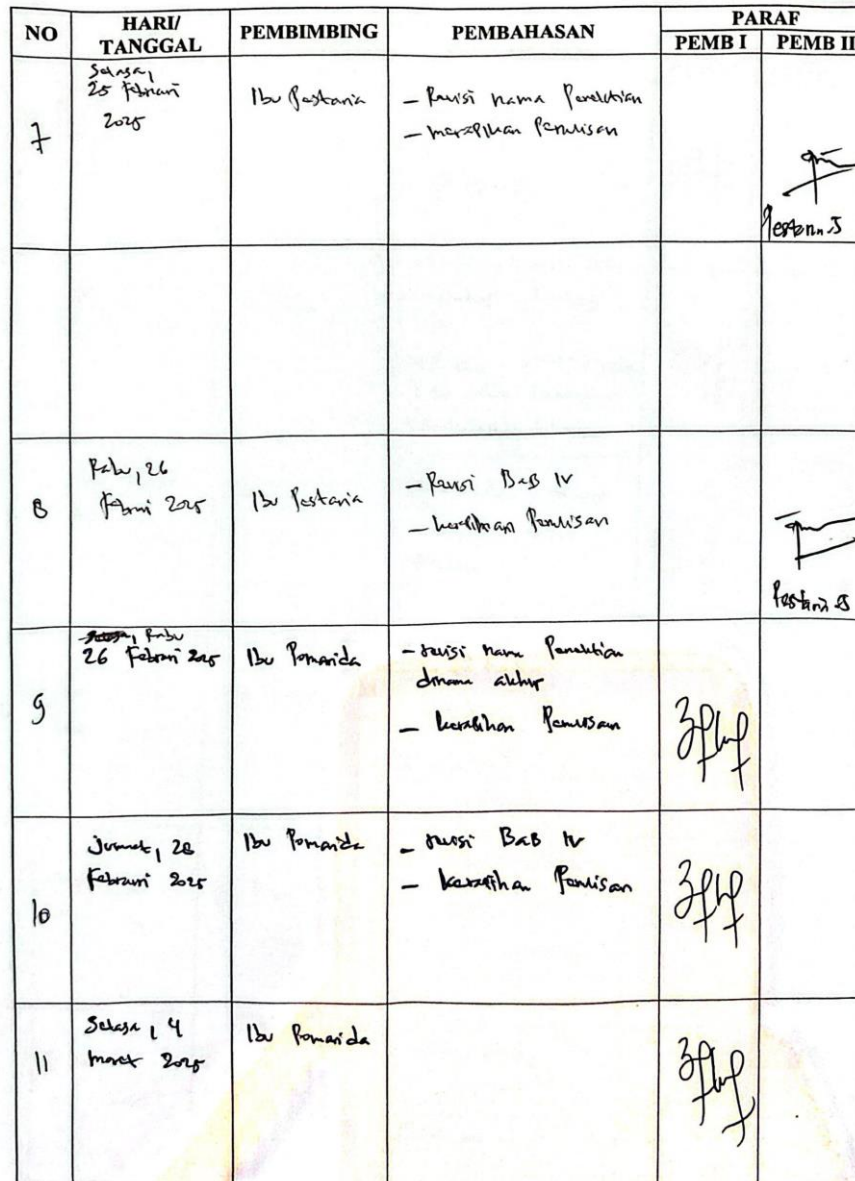 NO
HARI/
TANGGAL
PEMBIMBING
PEMBAHASAN
PARAF
PEMB I
PEMB II
7
Selasa,
25 Februari
2025
Ibu Pestaria
- Revisi nama Penelitian
- merapihan Penulisan
Pestaria S
8
Rabu, 26
Februari 2025
Ibu Pestaria
- Revisi BAB IV
- kerapihan Penulisan
Pestaria S
9
Rabu
26 Februari 2025
Ibu Pomarida
- revisi nama Penelitian
- kerapihan Penulisan
10
Jumat, 28
Februari 2025
Ibu Pomarida
- revisi BAB IV
- kerapihan Penulisan
11
Selasa, 4
maret 2025
Ibu Pomarida